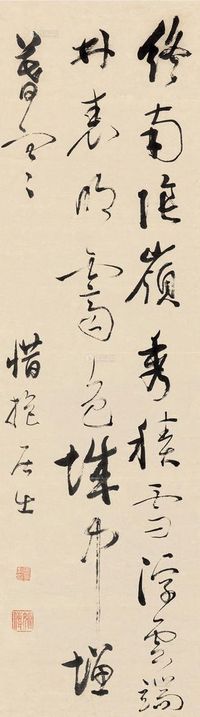 終南陰嶺秀積雪浮雲端
林表明霽色城中增
暮寒
惜抱居士